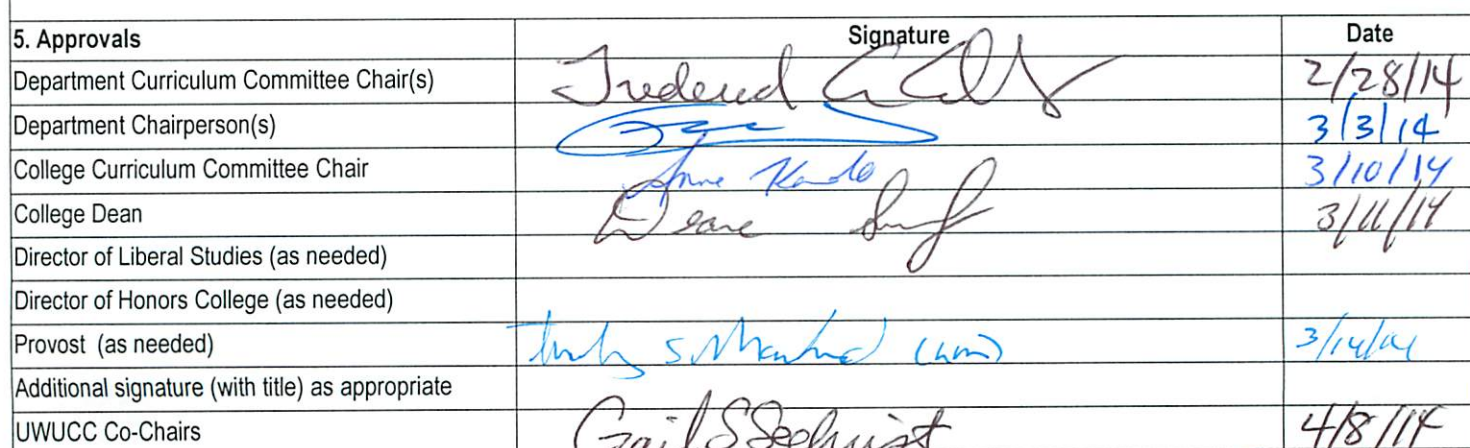 5. Approvals Signature Date
Department Curriculum Committee Chair(s) 2/28/14
Department Chairperson(s) 3/3/14
College Curriculum Committee Chair Anne 3/10/14
College Dean Deane 3/11/14
Director of Liberal Studies (as needed)
Director of Honors College (as needed)
Provost (as needed)
Additional signature (with title) as appropriate
UWUCC Co-Chairs Gail S Sechrist 4/8/14